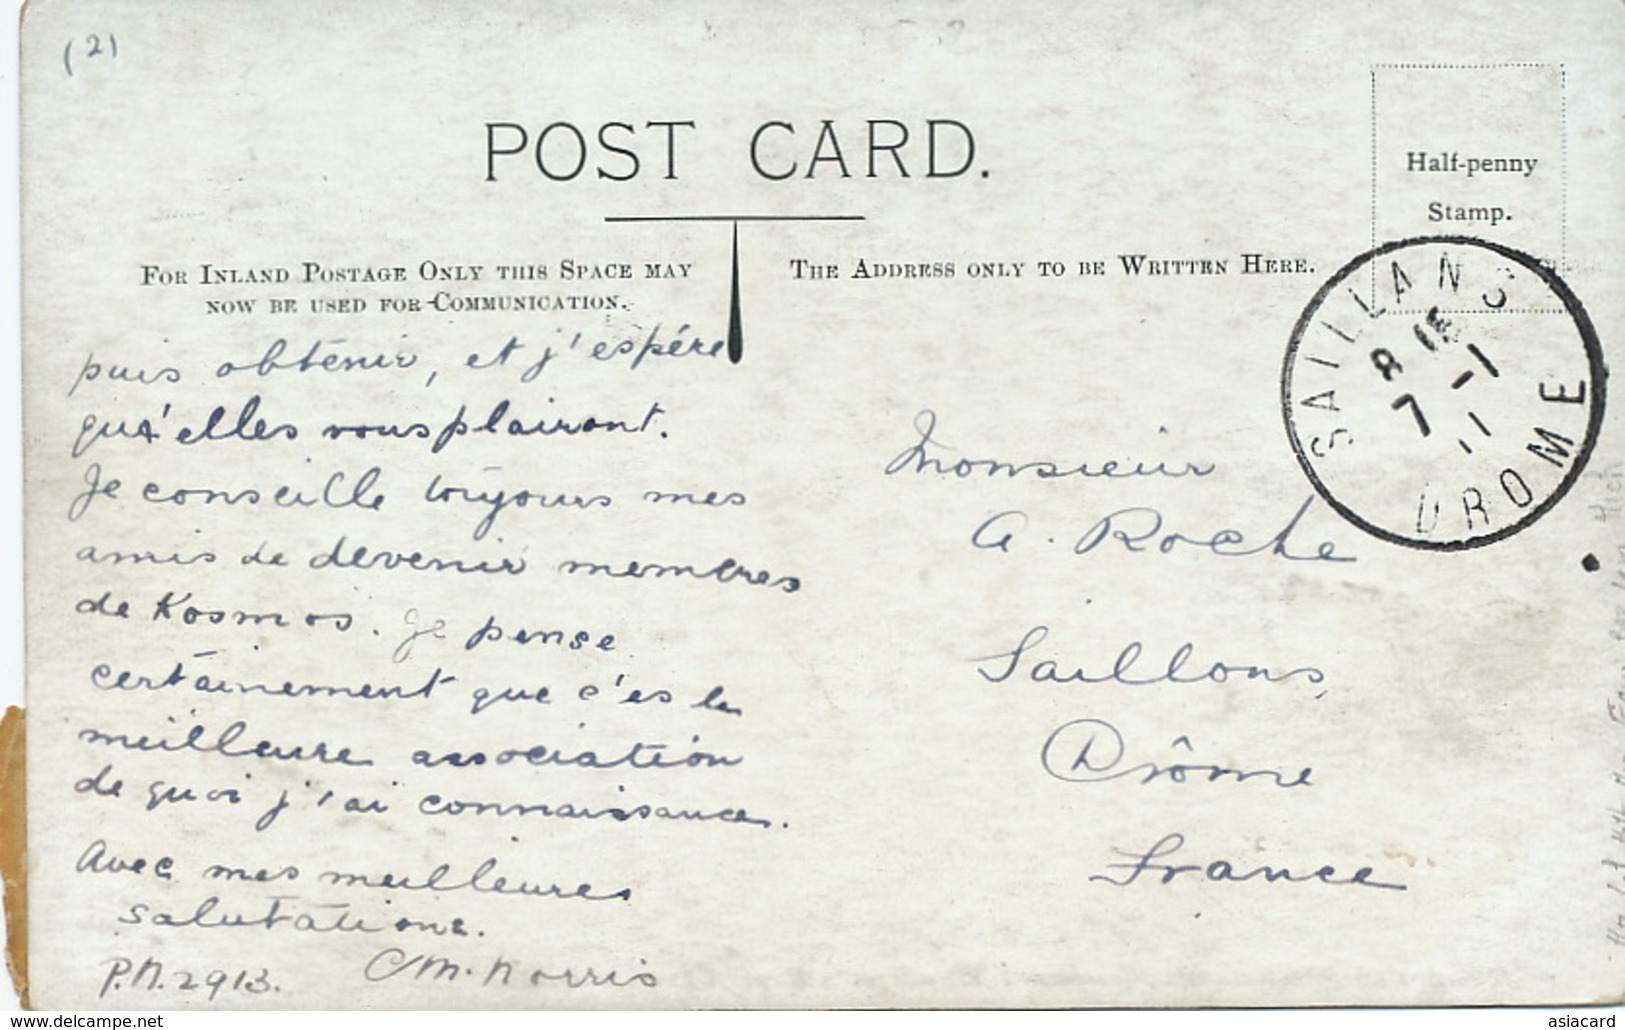 (2)
POST CARD.
Half-penny
Stamp.
FOR INLAND POSTAGE ONLY THIS SPACE MAY
NOW BE USED FOR COMMUNICATION.
THE ADDRESS ONLY TO BE WRITTEN HERE.
SAILLANS
8
7 -1
11
DROME
puis obtenir, et j'espére
qu'elles vous plairont.
Je conseille toujours mes
amis de devenir membres
de Kosmos. Je pense
certainement que c'es la
meilleure association
de quoi j'ai connaissance.
Avec mes meilleures
salutations.
P.N. 2913. C M. Norris
Monsieur
A. Roche
Saillons,
Drôme
France
www.delcampe.net
asiacard